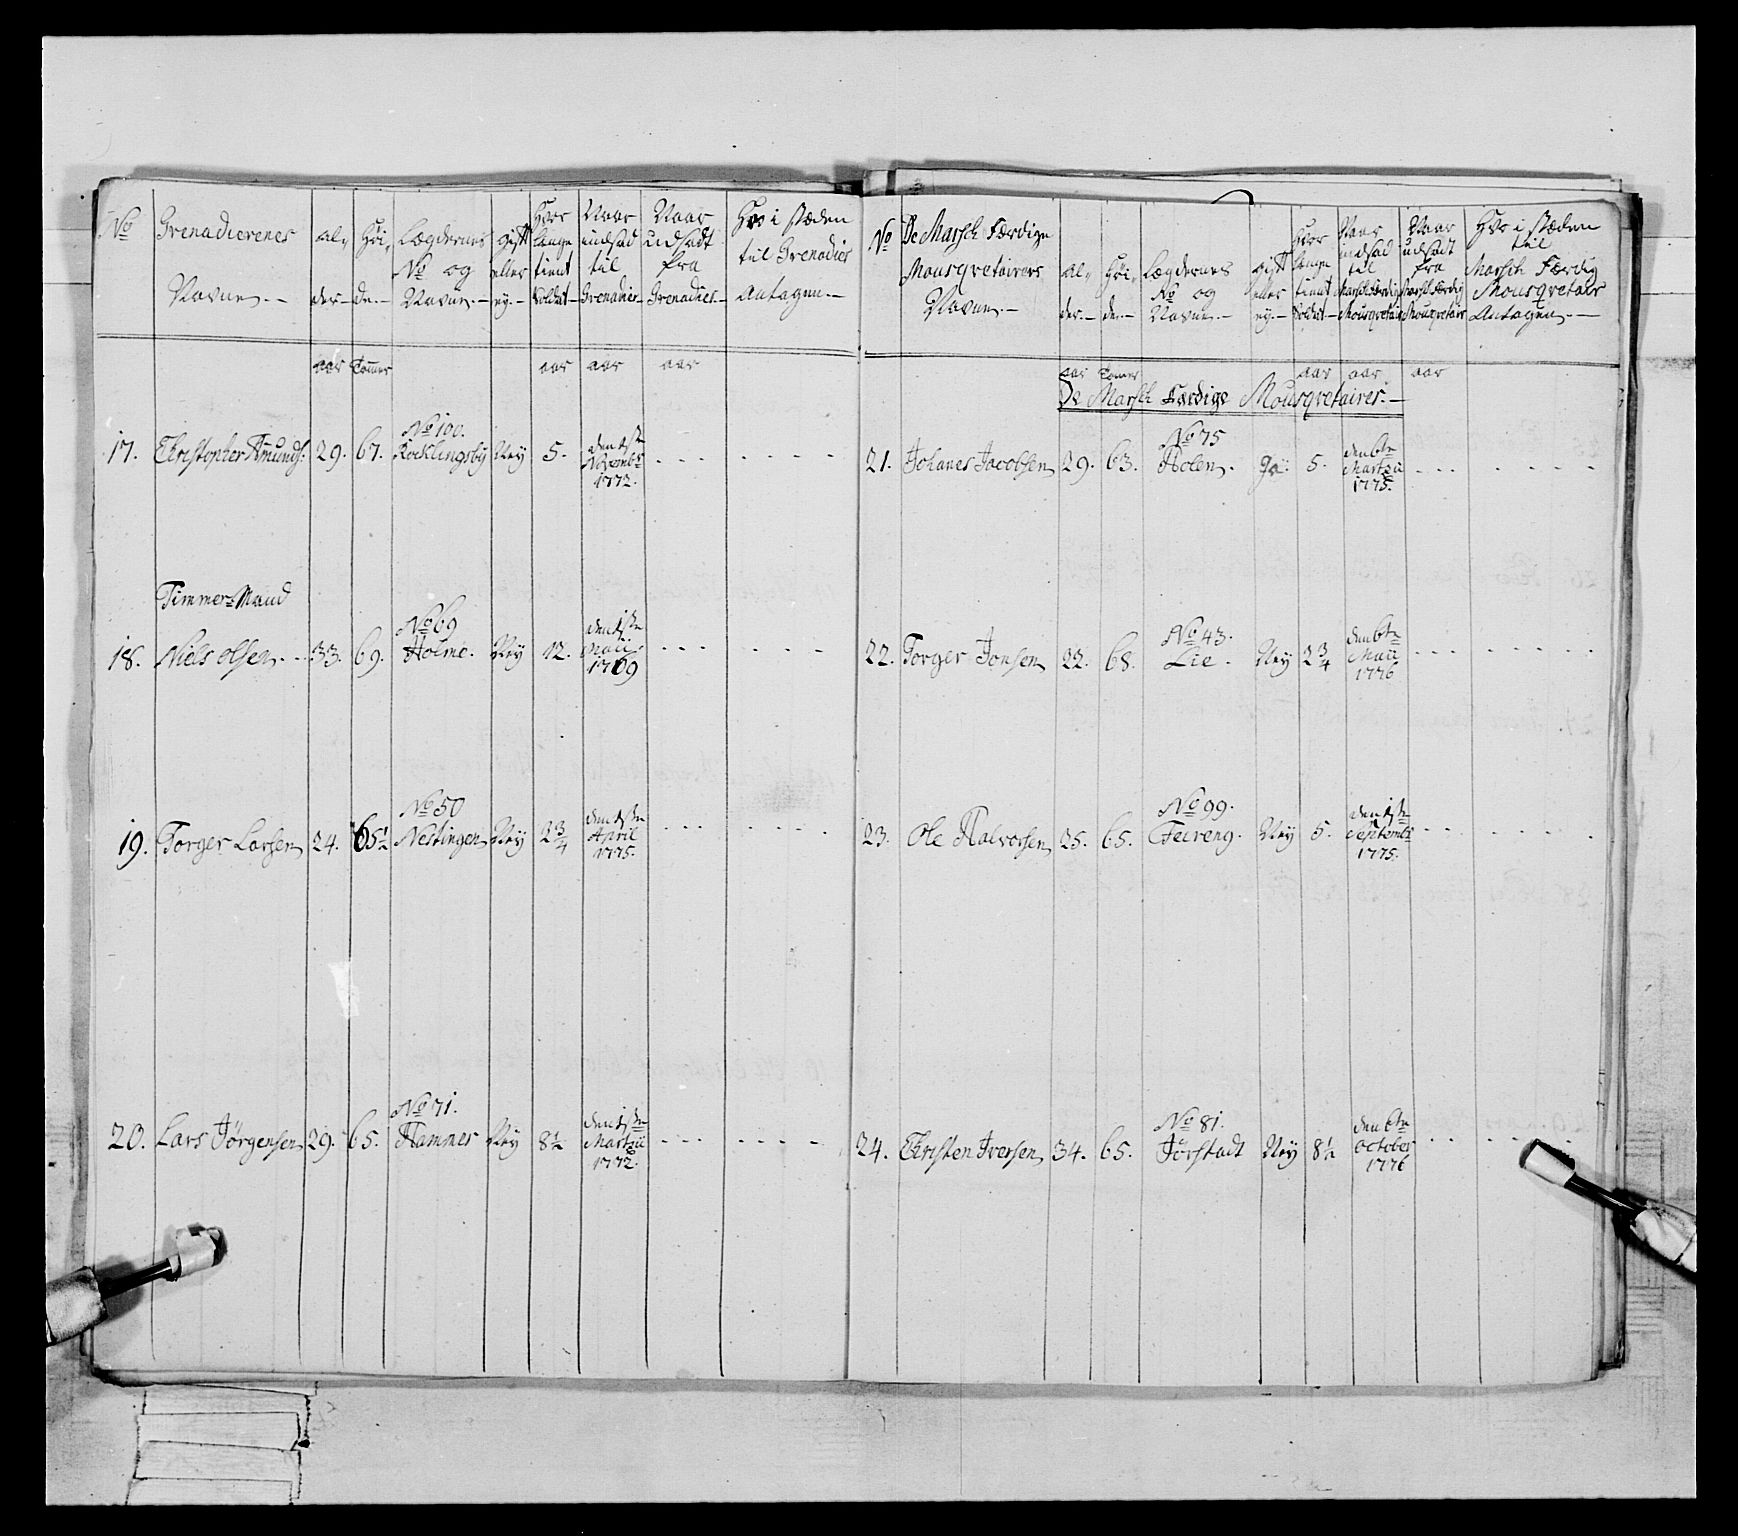 No Grenadierenes Navne.– al„ der– Höi„ de.– Lægdernes No og Navne.– gift eller ey– Hvor länge tient Soldat– Naar indsad til Grenadier– Naar udsadt fra Grenadier– Hvo i stæden til Grenadier Antagen.–
aar Tomer aar aar aar
17. Christopher Amunds: 29. 67. No 100. Rocklingsby Ney 5. den 1ste Novembr 1772. - - - - - - -
Timmer-Mand
18. Niels Olsen.– 33. 69. No 69 Holme. Ney 12. den 1ste Maii 1769 - - - - - - -
19. Torger Larsen 24. 65½ No 50 Nestingen Ney 2¾ den 1ste April 1775. - - - - - - -
20. Lars Jörgensen 29. 65. No 71. Hammer Ney 8½ den 1ste Martzii 1772. - - - - - - -
No De Marsch Færdige Mousqvetairers Navne.– al„ der.– Höi„ de.– Lægdernes No og Navne.– gift eller ey.– Hvor länge tient Soldat– Naar indsad til Marsch færdig Mousqvetair Naar udsadt fra Marsch færdig Mousqvetair Hvo i stæden til Marsch Færdig Mousqvetair Antagen.–
aar Tomer aar aar aar
De Marsch Færdige Mousqvetairer.–
21. Johanes Jacobsen 29. 63. No 75 Holen. Ja 5. den 6te Martzii 1775. - - - - - - - -
22. Torger Jonsen 22. 68. No 43. Lie. Ney 2¾ den 6te Maii 1776 - - - - - - - -
23. Ole Halvorsen 25. 65. No 99. Feireng. Ney 5. den 1ste Septembr 1775. - - - - - - - -
24. Christen Iversen 34. 65. No 81. Jörstadt Ney 8½ den 6te October 1776 - - - - -